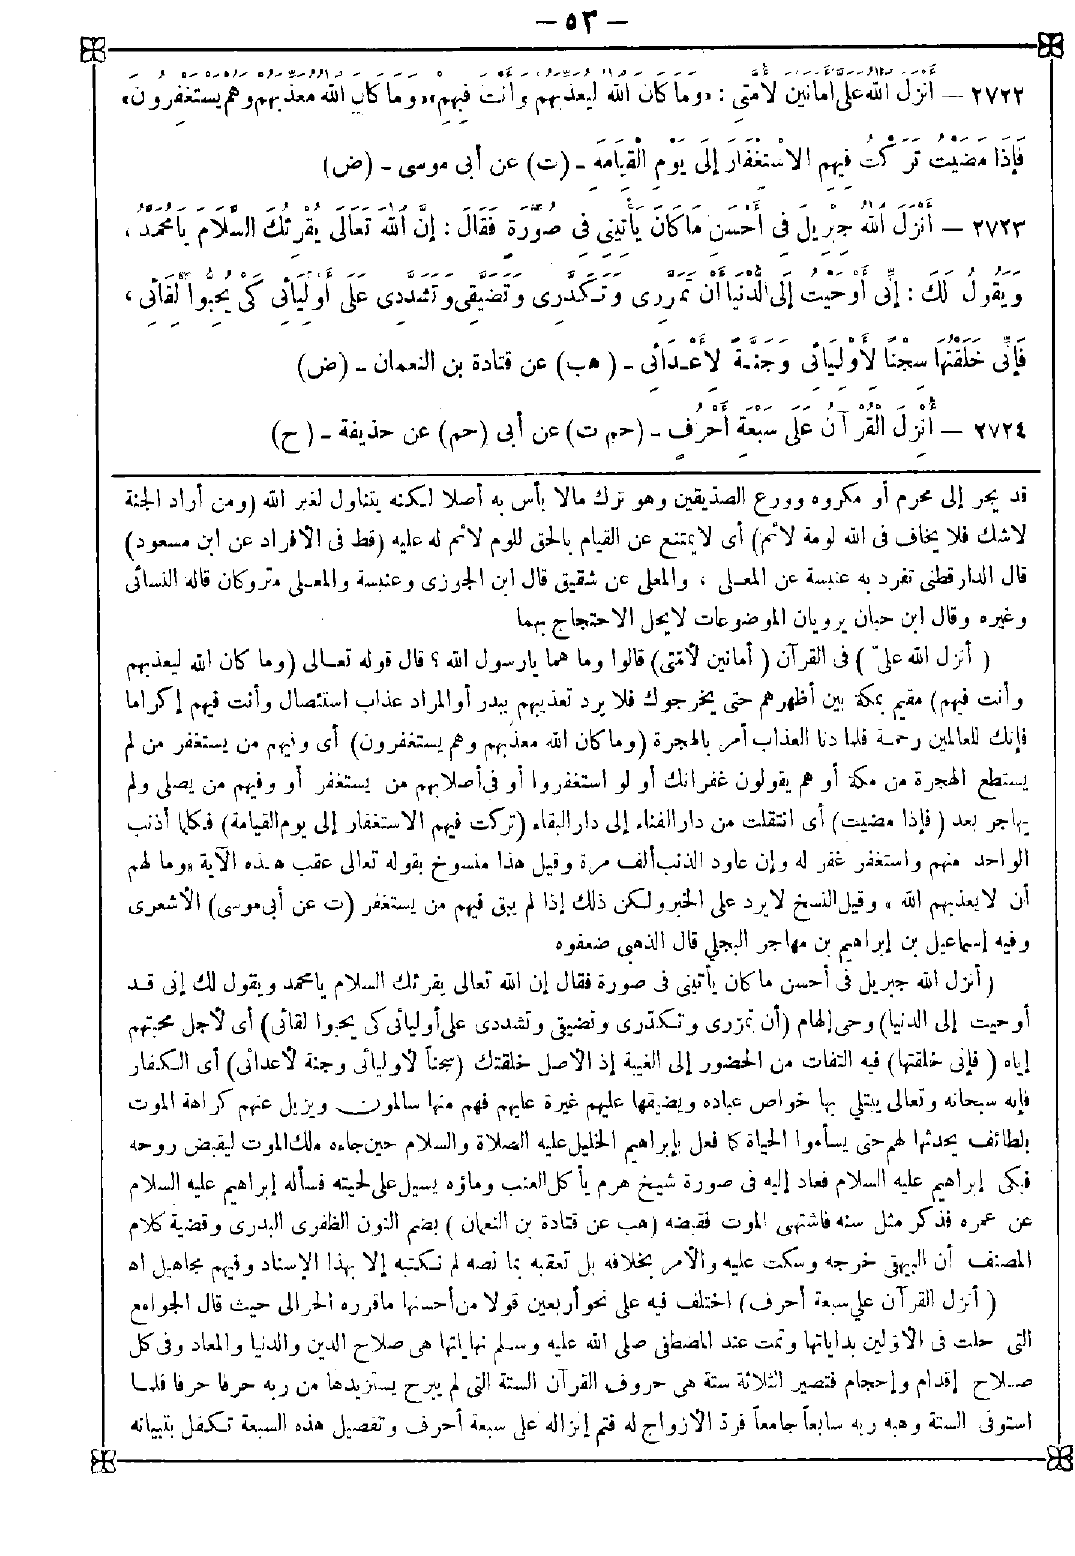 — ٥٣ —
٢٧٢٢ — أَنْزَلَ اللهُ عَلَىَّ أَمَانَيْنِ لِأُمَّتِى : «وَمَا كَانَ اللهُ لِيُعَذِّبَهُمْ وَأَنْتَ فِيهِمْ» «وَمَا كَانَ اللهُ مُعَذِّبَهُمْ وَهُمْ يَسْتَغْفِرُونَ»
فَإِذَا مَضَيْتُ تَرَكْتُ فِيهِمِ الِاسْتِغْفَارَ إِلَى يَوْمِ الْقِيَامَةِ - (ت) عن أبى موسى - (ض)
٢٧٢٣ — أَنْزَلَ اللهُ جِبْرِيلَ فِى أَحْسَنِ مَا كَانَ يَأْتِينِى فِى صُورَةٍ فَقَالَ : إِنَّ اللهَ تَعَالَى يُقْرِئُكَ السَّلَامَ يَا مُحَمَّدُ ،
وَيَقُولُ لَكَ : إِنِّى أَوْحَيْتُ إِلَى الدُّنْيَا أَنْ تَمَرَّرِى وَتَكَدَّرِى وَتَضَيَّقِى وَتَشَدَّدِى عَلَى أَوْلِيَائِى كَىْ يُحِبُّوا لِقَائِى ،
فَإِنِّى خَلَقْتُهَا سِجْنًا لِأَوْلِيَائِى وَجَنَّةً لِأَعْدَائِى - ( هب) عن قتادة بن النعمان - (ض)
٢٧٢٤ — أُنْزِلَ الْقُرْآنُ عَلَى سَبْعَةِ أَحْرُفٍ - (حم ت) عن أبى (حم) عن حذيفة - ( ح)
قد يجر إلى محرم أو مكروه وورع الصديقين وهو ترك مالا بأس به أصلا لكنه يتناول لغير الله (ومن أراد الجنة
لاشك فلا يخاف فى الله لومة لائم) أى لايمتنع عن القيام بالحق للوم لائم له عليه (قط فى الأفراد عن ابن مسعود)
قال الدارقطنى تفرد به عنبسة عن المعلى ، والمعلى عن شقيق قال ابن الجوزى وعنبسة والمعلى متروكان قاله النسائى
وغيره وقال ابن حبان يرويان الموضوعات لايحل الاحتجاج بهما
( أنزل الله علىّ ) فى القرآن ( أمانين لأمتى) قالوا وما هما يارسول الله ؟ قال قوله تعالى (وما كان الله ليعذبهم
وأنت فيهم) مقيم بمكة بين أظهرهم حتى يخرجوك فلا يرد تعذيبهم ببدر أوالمراد عذاب استئصال وأنت فيهم إكراما
فإنك للعالمين رحمة فلما دنا العذاب أمر بالهجرة (وما كان الله معذبهم وهم يستغفرون) أى وفيهم من يستغفر من لم
يستطع الهجرة من مكة أو هم يقولون غفرانك أو لو استغفروا أو فى أصلابهم من يستغفر أو وفيهم من يصلى ولم
يهاجر بعد ( فإذا مضيت) أى انتقلت من دار الفناء إلى دار البقاء (تركت فيهم الاستغفار إلى يوم القيامة) فكلما أذنب
الواحد منهم واستغفر غفر له وإن عاود الذنب ألف مرة وقيل هذا منسوخ بقوله تعالى عقب هذه الآية «وما لهم
أن لا يعذبهم الله ، وقيل النسخ لا يرد على الخبر ولكن ذلك إذا لم يبق فيهم من يستغفر (ت عن أبى موسى) الأشعرى
وفيه إسماعيل بن إبراهيم بن مهاجر البجلى قال الذهبى ضعفوه
( أنزل الله جبريل فى أحسن ما كان يأتينى فى صورة فقال إن الله تعالى يقرئك السلام يا محمد ويقول لك إنى قد
أوحيت إلى الدنيا) وحى إلهام (أن تمررى وتكدرى وتضيق وتشددى على أوليائى كى يحبوا لقائى) أى لأجل محبتهم
إياه ( فإنى خلقتها) فيه التفات من الحضور إلى الغيبة إذ الأصل خلقتك (سجنا لأوليائى وجنة لأعدائى) أى الكفار
فإنه سبحانه وتعالى يبتلى بها خواص عباده ويضيقها عليهم غيرة عليهم فهم منها سالمون ويزيل عنهم كراهة الموت
بلطائف يحدثها لهم حتى يسأموا الحياة كما فعل بإبراهيم الخليل عليه الصلاة والسلام حين جاءه ملك الموت ليقبض روحه
فبكى إبراهيم عليه السلام فعاد إليه فى صورة شيخ هرم يأكل العنب وماؤه يسيل على لحيته فسأله إبراهيم عليه السلام
عن عمره فذكر مثل سنه فاشتهى الموت فقبضه (هب عن قتادة بن النعمان ) بضم النون الظفرى البدرى وقضية كلام
المصنف أن البيهقى خرجه وسكت عليه والأمر بخلافه بل تعقبه بما نصه لم نكتبه إلا بهذا الإسناد وفيهم مجاهيل اه
( أنزل القرآن على سبعة أحرف) اختلف فيه على نحو أربعين قولا من أحسنها ما قرره الحرالى حيث قال الجوامع
التى حلت فى الأولين بداياتها وتمت عند المصطفى صلى الله عليه وسلم نهاياتها هى صلاح الدين والدنيا والمعاد وفى كل
صلاح إقدام وإحجام فتصير الثلاثة ستة هى حروف القرآن الستة التى لم يبرح يستزيدها من ربه حرفا حرفا فلما
استوفى الستة وهبه ربه سابعاً جامعاً فردَ الأزواج له فتم إنزاله على سبعة أحرف وتفصيل هذه السبعة تكفل بتبيانه